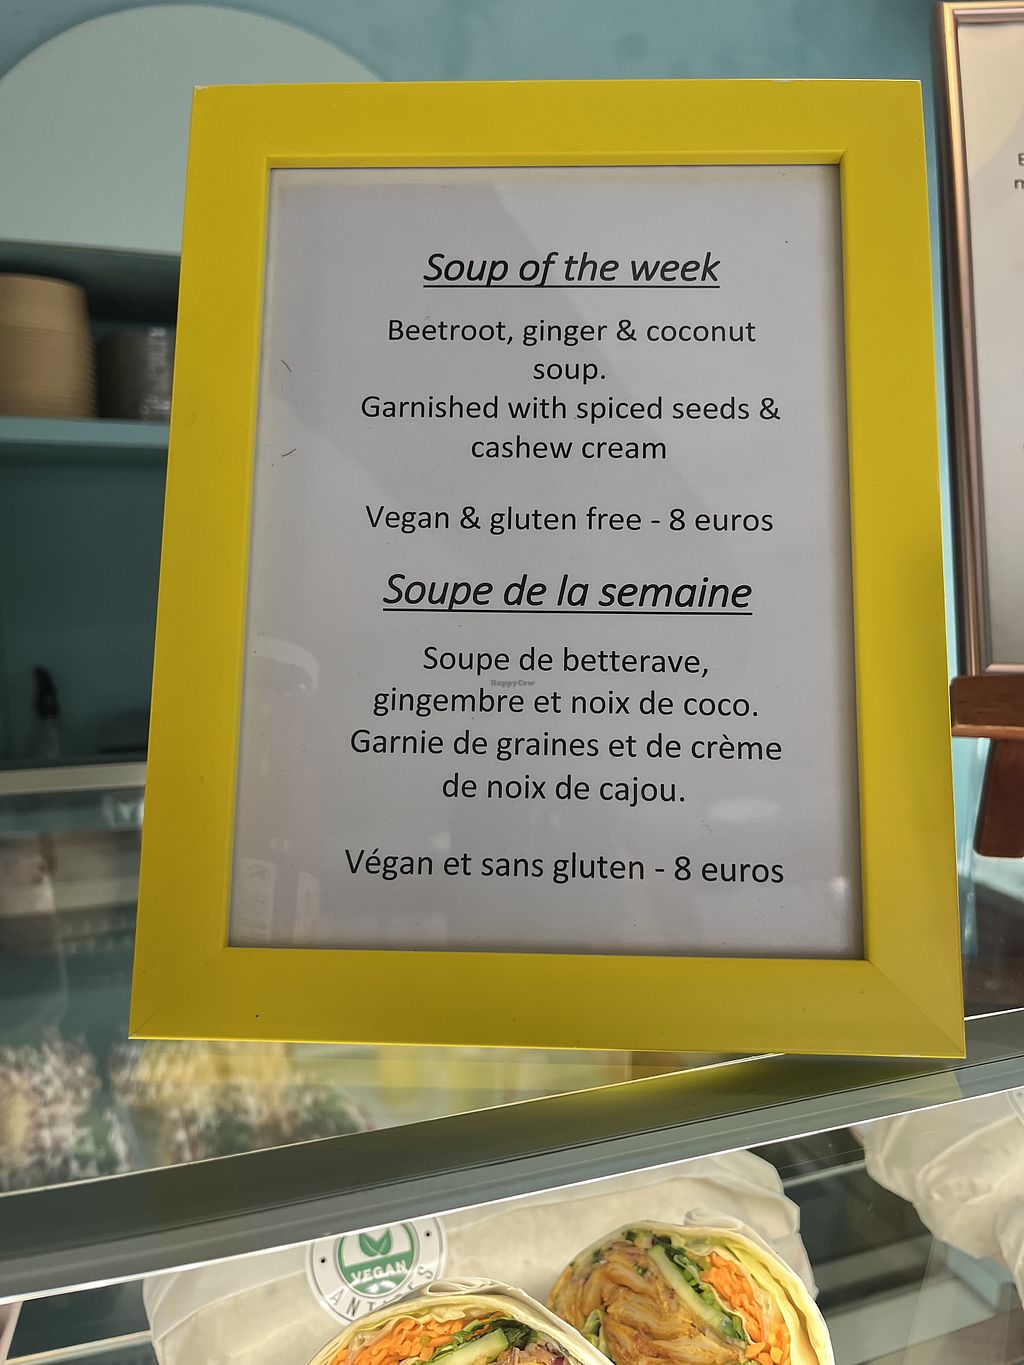 Soup of the week
Beetroot, ginger & coconut
soup.
Garnished with spiced seeds &
cashew cream
Vegan & gluten free - 8 euros
Soupe de la semaine
Soupe de betterave,
HappyCow
gingembre et noix de coco.
Garnie de graines et de crème
de noix de cajou.
Végan et sans gluten - 8 euros
VEGAN